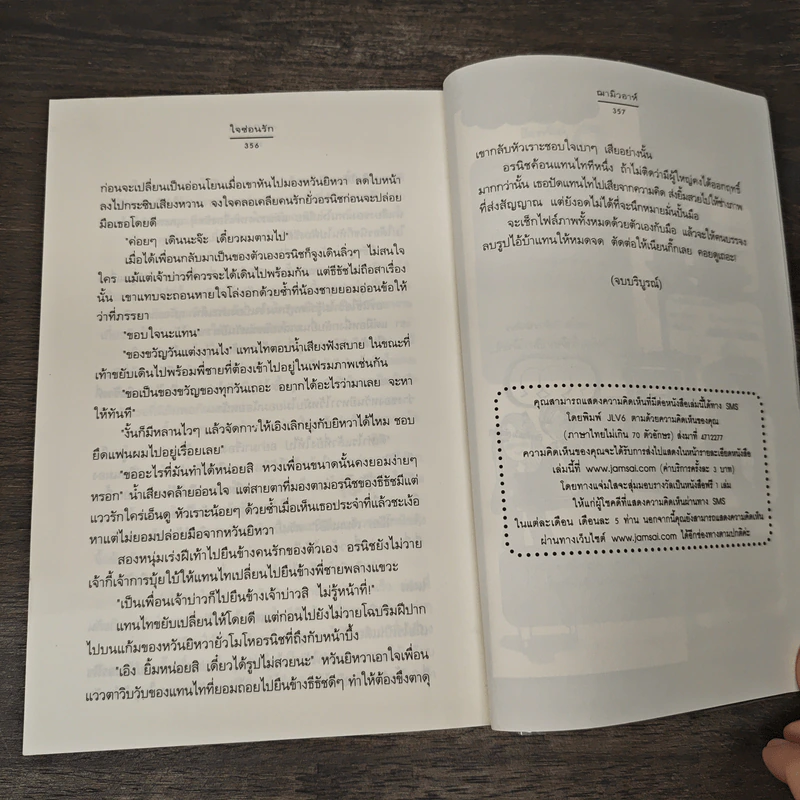 ใจซ่อนรัก
356
ก่อนจะเปลี่ยนเป็นอ่อนโยนเมื่อเขาหันไปมองหวันยิหวา ลดใบหน้า
ลงไปกระซิบเสียงหวาน จงใจคลอเคลียคนรักยั่วอรนิชก่อนจะปล่อย
มือเธอโดยดี
"ค่อยๆ เดินนะจ๊ะ เดี๋ยวผมตามไป"
เมื่อได้เพื่อนกลับมาเป็นของตัวเองอรนิชก็จูงเดินลิ่วๆ ไม่สนใจ
ใคร แม้แต่เจ้าบ่าวที่ควรจะได้เดินไปพร้อมกัน แต่ธีธัชไม่ถือสาเรื่อง
นั้น เขาแทบจะถอนหายใจโล่งอกด้วยซ้ำที่น้องชายยอมอ่อนข้อให้
ว่าที่ภรรยา
"ขอบใจนะแทน"
"ของขวัญวันแต่งงานไง" แทนไทตอบน้ำเสียงฟังสบาย ในขณะที่
เท้าขยับเดินไปพร้อมพี่ชายที่ต้องเข้าไปอยู่ในเฟรมภาพเช่นกัน
"ขอเป็นของขวัญของทุกวันเถอะ อยากได้อะไรว่ามาเลย จะหา
ให้ทันที"
"งั้นก็มีหลานไวๆ แล้วจัดการให้เอิงเลิกยุ่งกับยิหวาได้ไหม ชอบ
ยึดแฟนผมไปอยู่เรื่อยเลย"
"ขออะไรที่มันทำได้หน่อยสิ หวงเพื่อนขนาดนั้นคงยอมง่ายๆ
หรอก" น้ำเสียงคล้ายอ่อนใจ แต่สายตาที่มองตามอรนิชของธีธัชมีแต่
แววรักใคร่เอ็นดู หัวเราะน้อยๆ ด้วยซ้ำเมื่อเห็นเธอประจำที่แล้วชะเง้อ
หาแต่ไม่ยอมปล่อยมือจากหวันยิหวา
สองหนุ่มเร่งฝีเท้าไปยืนข้างคนรักของตัวเอง อรนิชยังไม่วาย
เจ้ากี้เจ้าการบุ้ยใบ้ให้แทนไทเปลี่ยนไปยืนข้างพี่ชายพลางแขวะ
"เป็นเพื่อนเจ้าบ่าวก็ไปยืนข้างเจ้าบ่าวสิ ไม่รู้หน้าที่!"
แทนไทขยับเปลี่ยนให้โดยดี แต่ก่อนไปยังไม่วายโฉบริมฝีปาก
ไปบนแก้มของหวันยิหวายั่วโมโหอรนิชที่ถึงกับหน้าบึ้ง
"เอิง ยิ้มหน่อยสิ เดี๋ยวได้รูปไม่สวยนะ" หวันยิหวาเอาใจเพื่อน
แววตาวิบวับของแทนไทที่ยอมถอยไปยืนข้างธีธัชดีๆ ทำให้ต้องขึงตาดุ
ฌามิวอาห์
357
เขากลับหัวเราะชอบใจเบาๆ เสียอย่างนั้น
อรนิชค้อนแทนไทที่หนึ่ง ถ้าไม่ติดว่ามีผู้ใหญ่คงได้ออกฤทธิ์
มากกว่านั้น เธอปัดแทนไทไปเสียจากความคิด ส่งยิ้มสวยไปให้ช่างภาพ
ที่ส่งสัญญาณ แต่ยังอดไม่ได้ที่จะนึกหมายมั่นปั้นมือ
จะเช็กไฟล์ภาพทั้งหมดด้วยตัวเองกับมือ แล้วจะให้คนบรรจง
ลบรูปไอ้บ้าแทนให้หมดจด ตัดต่อให้เนียนกิ๊กเลย คอยดูเถอะ!
(จบบริบูรณ์)
คุณสามารถแสดงความคิดเห็นที่มีต่อหนังสือเล่มนี้ได้ทาง SMS
โดยพิมพ์ JLV6 ตามด้วยความคิดเห็นของคุณ
(ภาษาไทยไม่เกิน 70 ตัวอักษร) ส่งมาที่ 4712277
ความคิดเห็นของคุณจะได้รับการส่งไปแสดงในหน้ารายละเอียดหนังสือ
เล่มนี้ที่ www.jamsai.com (ค่าบริการครั้งละ 3 บาท)
โดยทางแจ่มใสจะสุ่มมอบรางวัลเป็นหนังสือฟรี 1 เล่ม
ให้แก่ผู้โชคดีที่แสดงความคิดเห็นผ่านทาง SMS
ในแต่ละเดือน เดือนละ 5 ท่าน นอกจากนี้คุณยังสามารถแสดงความคิดเห็น
ผ่านทางเว็บไซต์ www.jamsai.com ได้อีกช่องทางตามปกติค่ะ